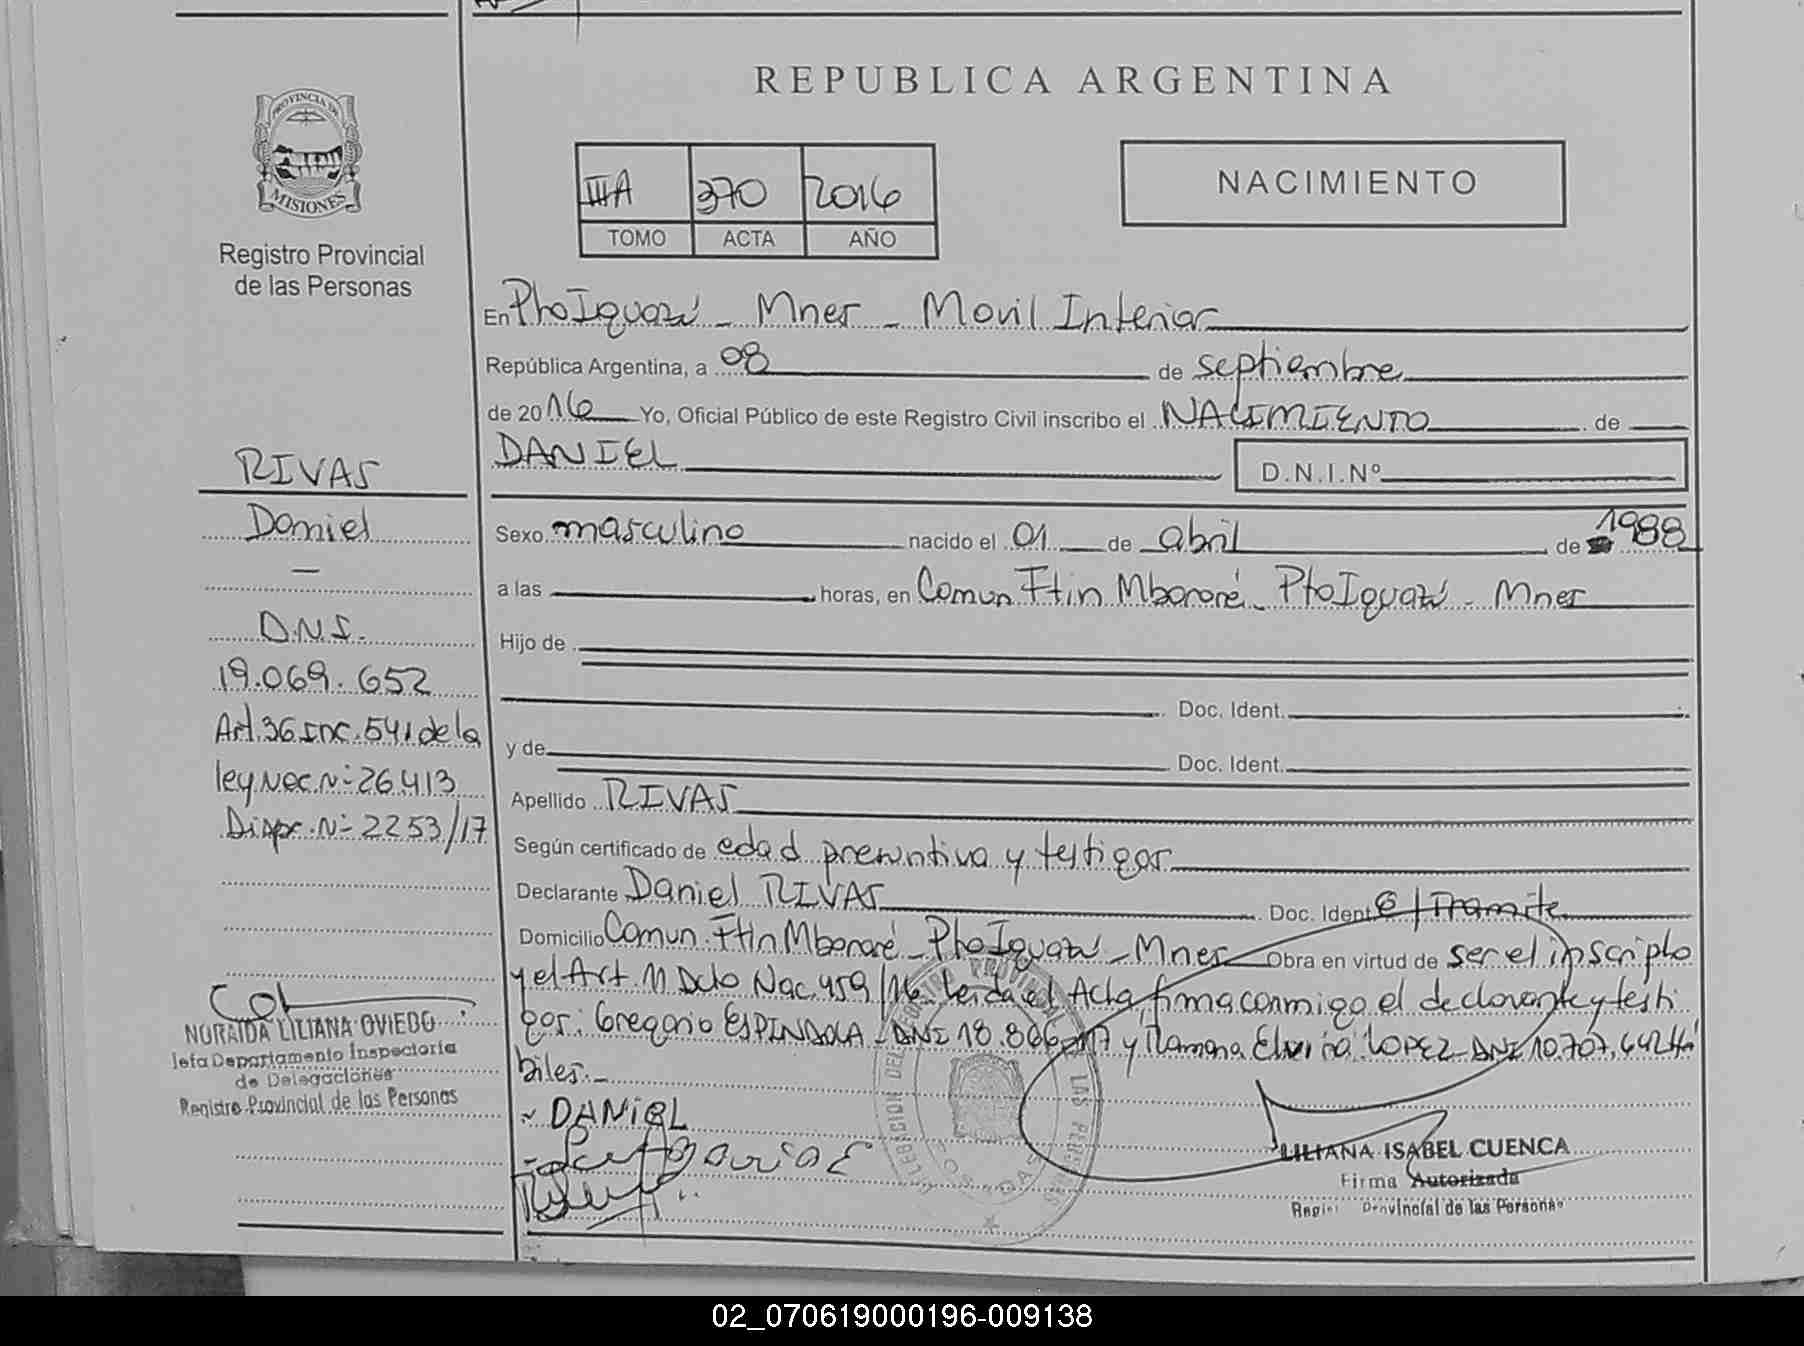 REPUBLICA ARGENTINA
PROVINCIA DE
MISIONES
Registro Provincial
de las Personas
IIIA 370 2016
TOMO ACTA AÑO
NACIMIENTO
En Pto Iguazú - Mnes - Movil Interior
República Argentina, a 08 de septiembre
de 2016 Yo, Oficial Público de este Registro Civil inscribo el NACIMIENTO de
DANIEL D.N.I.Nº
Sexo masculino nacido el 01 de abril de 1988
a las horas, en Comun Ftin Mbororé - Pto Iguazú - Mnes
Hijo de
Doc. Ident.
y de Doc. Ident.
Apellido RIVAS
Según certificado de edad presuntiva y testigos
Declarante Daniel RIVAS Doc. Ident E/Tramite
Domicilio Comun. Ftin Mbororé - Pto Iguazú - Mnes Obra en virtud de ser el inscripto
y el Art. 11 Dcto Nac. 459/16. Leida el Acta, firma conmigo el declarante y testi
gos: Gregorio ESPINDOLA - DNI 18.866. y Ramona Elvira LOPEZ - DNI 10.707.642 Há
biles.-
DANIEL
LILIANA ISABEL CUENCA
Firma Autorizada
Regist Provincial de las Personas
RIVAS
Daniel
—
D.N.I.
19.069.652
Art. 36 Inc. 541 de la
ley Nac. Nº 26.413
Disp. Nº 2253/17
NORAIDA LILIANA OVIEDO
Jefa Departamento Inspectoria
de Delegaciones
Registro Provincial de las Personas
02_070619000196-009138